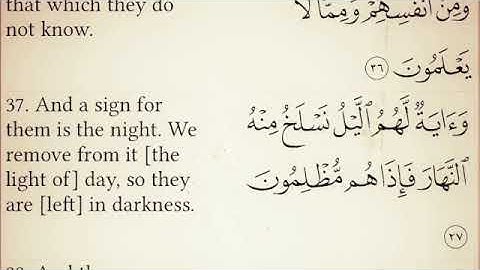 that which they do
not know.
وَمِنْ أَنفُسِهِمْ وَمِمَّا لَا
يَعْلَمُونَ ٣٦
37. And a sign for
them is the night. We
remove from it [the
light of] day, so they
are [left] in darkness.
وَءَايَةٌ لَّهُمُ ٱلَّيْلُ نَسْلَخُ مِنْهُ
ٱلنَّهَارَ فَإِذَا هُم مُّظْلِمُونَ
٣٧